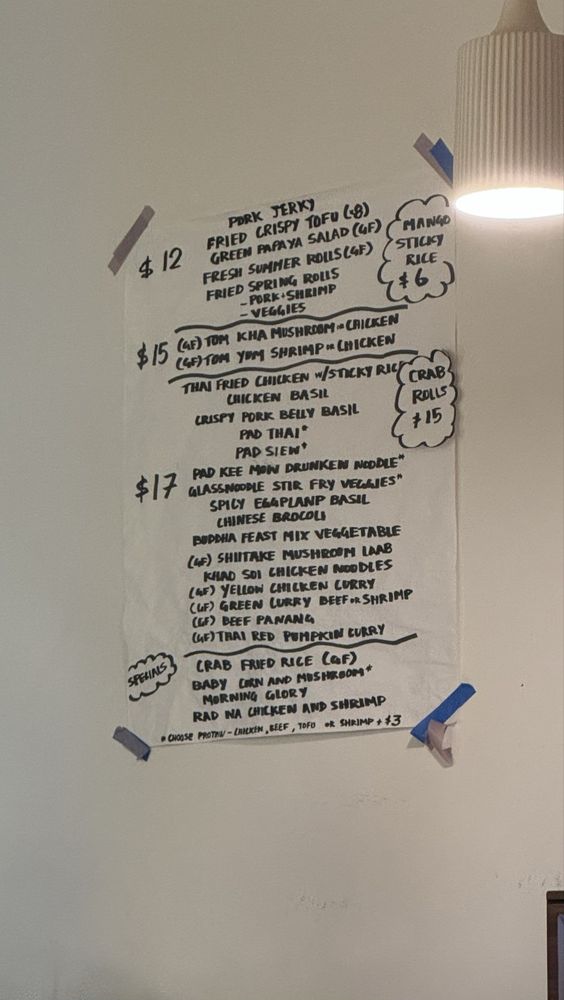 PORK JERKY
FRIED CRISPY TOFU (8)
GREEN PAPAYA SALAD (GF)
$12
FRESH SUMMER ROLLS (GF)
FRIED SPRING ROLLS
- PORK+SHRIMP
- VEGGIES
MANGO
STICKY
RICE
$6
$15
(GF) TOM KHA MUSHROOM OR CHICKEN
(GF) TOM YUM SHRIMP OR CHICKEN
THAI FRIED CHICKEN W/STICKY RICE
CHICKEN BASIL
CRISPY PORK BELLY BASIL
PAD THAI*
PAD SIEW*
CRAB
ROLLS
$15
$17
PAD KEE MOW DRUNKEN NOODLE*
GLASSNOODLE STIR FRY VEGGIES*
SPICY EGGPLANP BASIL
CHINESE BROCOLI
BUDDHA FEAST MIX VEGGETABLE
(GF) SHIITAKE MUSHROOM LAAB
KHAO SOI CHICKEN NOODLES
(GF) YELLOW CHICKEN CURRY
(GF) GREEN CURRY BEEF OR SHRIMP
(GF) BEEF PANANG
(GF) THAI RED PUMPKIN CURRY
SPECIALS
CRAB FRIED RICE (GF)
BABY CORN AND MUSHROOM*
MORNING GLORY
RAD NA CHICKEN AND SHRIMP
* CHOOSE PROTEIN - CHICKEN, BEEF, TOFU OR SHRIMP + $3